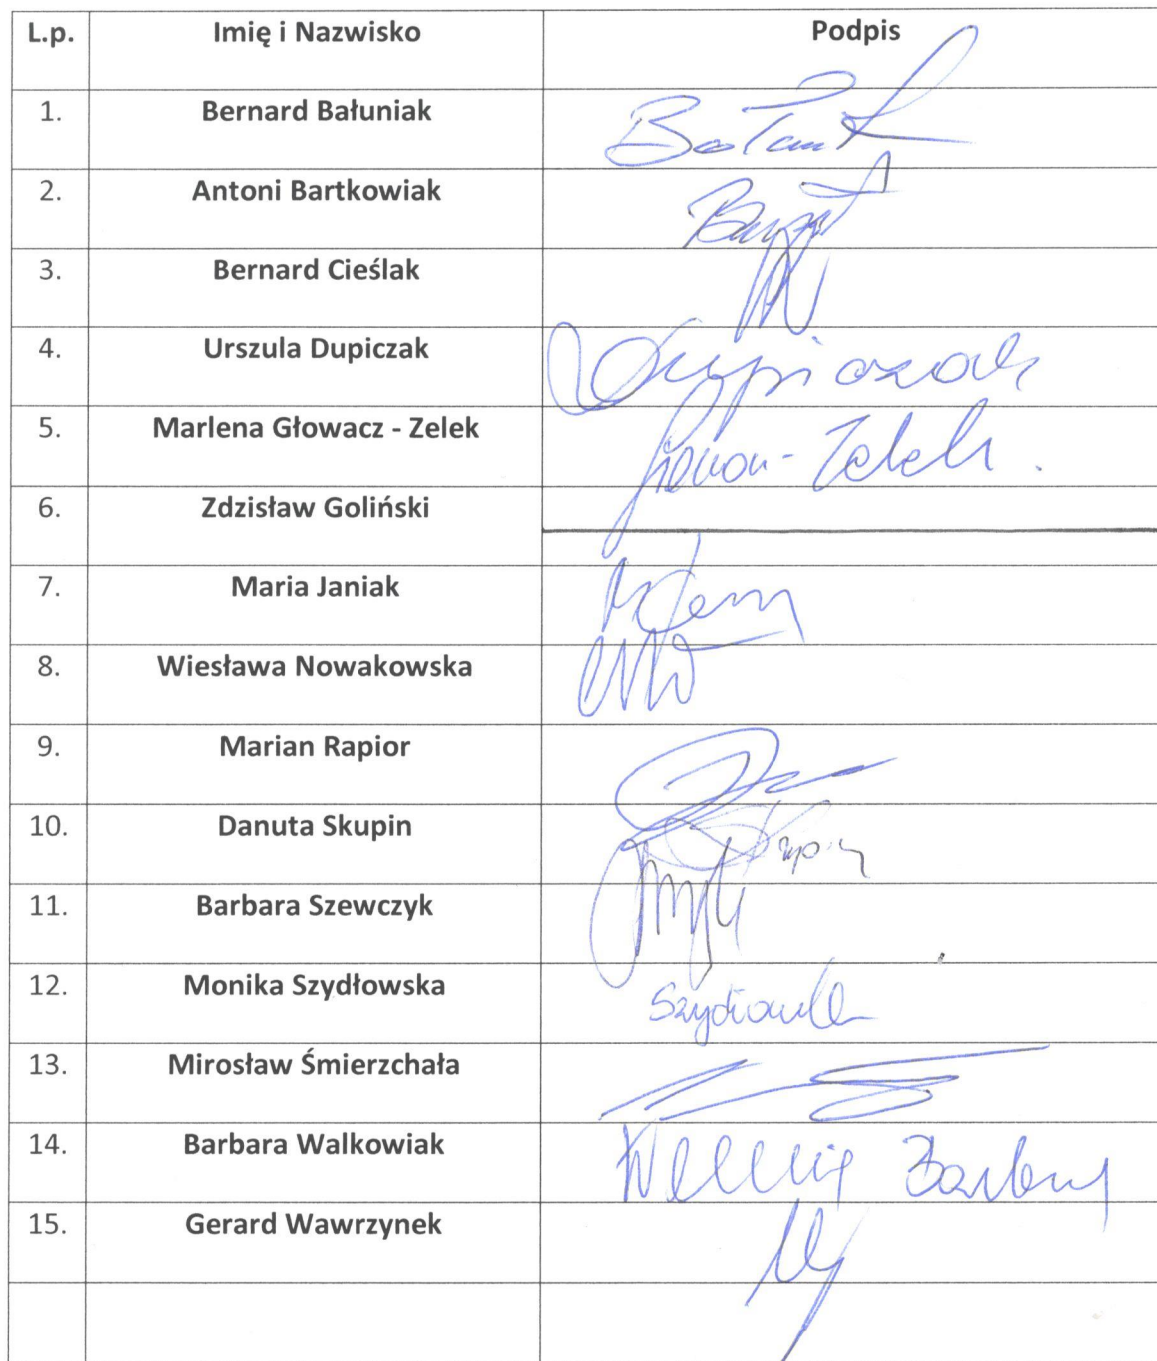 L.p. Imię i Nazwisko Podpis
1. Bernard Bałuniak
2. Antoni Bartkowiak
3. Bernard Cieślak
4. Urszula Dupiczak Dupiczak
5. Marlena Głowacz - Zelek
6. Zdzisław Goliński
7. Maria Janiak
8. Wiesława Nowakowska
9. Marian Rapior
10. Danuta Skupin Skupin
11. Barbara Szewczyk
12. Monika Szydłowska
13. Mirosław Śmierzchała
14. Barbara Walkowiak
15. Gerard Wawrzynek